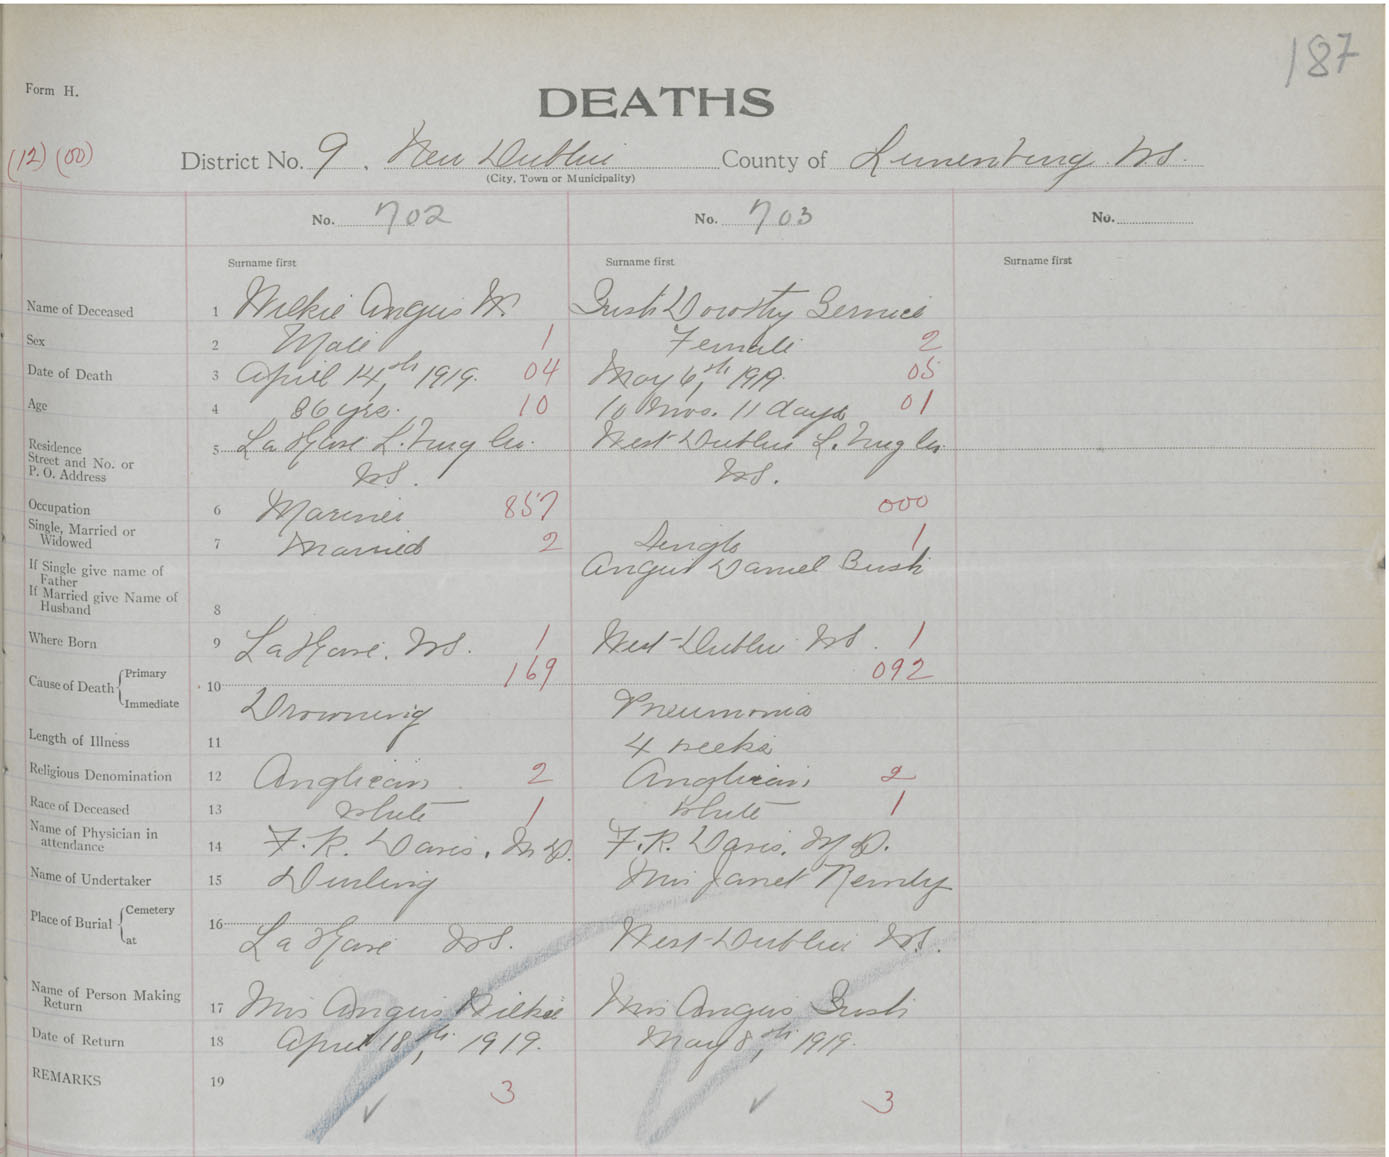 187
Form H.
DEATHS
(12) (00)
District No. 9, New Dublin County of Lunenburg. NS.
(City, Town or Municipality)
No. 702 No. 703 No.
Surname first Surname first Surname first
Name of Deceased 1 Wilkie Angus W. Dorothy Bernice
Sex 2 Male 1 Female 2
Date of Death 3 April 14,th 1919. 04 May 6,th 1919. 05
Age 4 86 yrs. 10 10 Mos. 11 days 01
Residence
Street and No. or
P. O. Address
5 La Have L.burg Co. West Dublin L.burg Co.
NS. NS.
Occupation 6 Mariner 857 000
Single, Married or
Widowed
7 Married 2 Single 1
If Single give name of
Father
Angus Daniel Bush
If Married give Name of
Husband
8
Where Born 9 La Have, NS. 1 West Dublin NS. 1
Cause of Death Primary 10 169 092
Immediate Drowning Pneumonia
Length of Illness 11 4 weeks
Religious Denomination 12 Anglican 2 Anglican 2
Race of Deceased 13 White 1 White 1
Name of Physician in
attendance
14 F. R. Davis, M.D. F. R. Davis, M.D.
Name of Undertaker 15 Mrs Janet Remby
Place of Burial Cemetery 16
at La Have NS. West Dublin NS.
Name of Person Making
Return
17 Mrs Angus Wilkie Mrs Angus Bush
Date of Return 18 April 18,th 1919. May 8,th 1919.
REMARKS 19
3 3